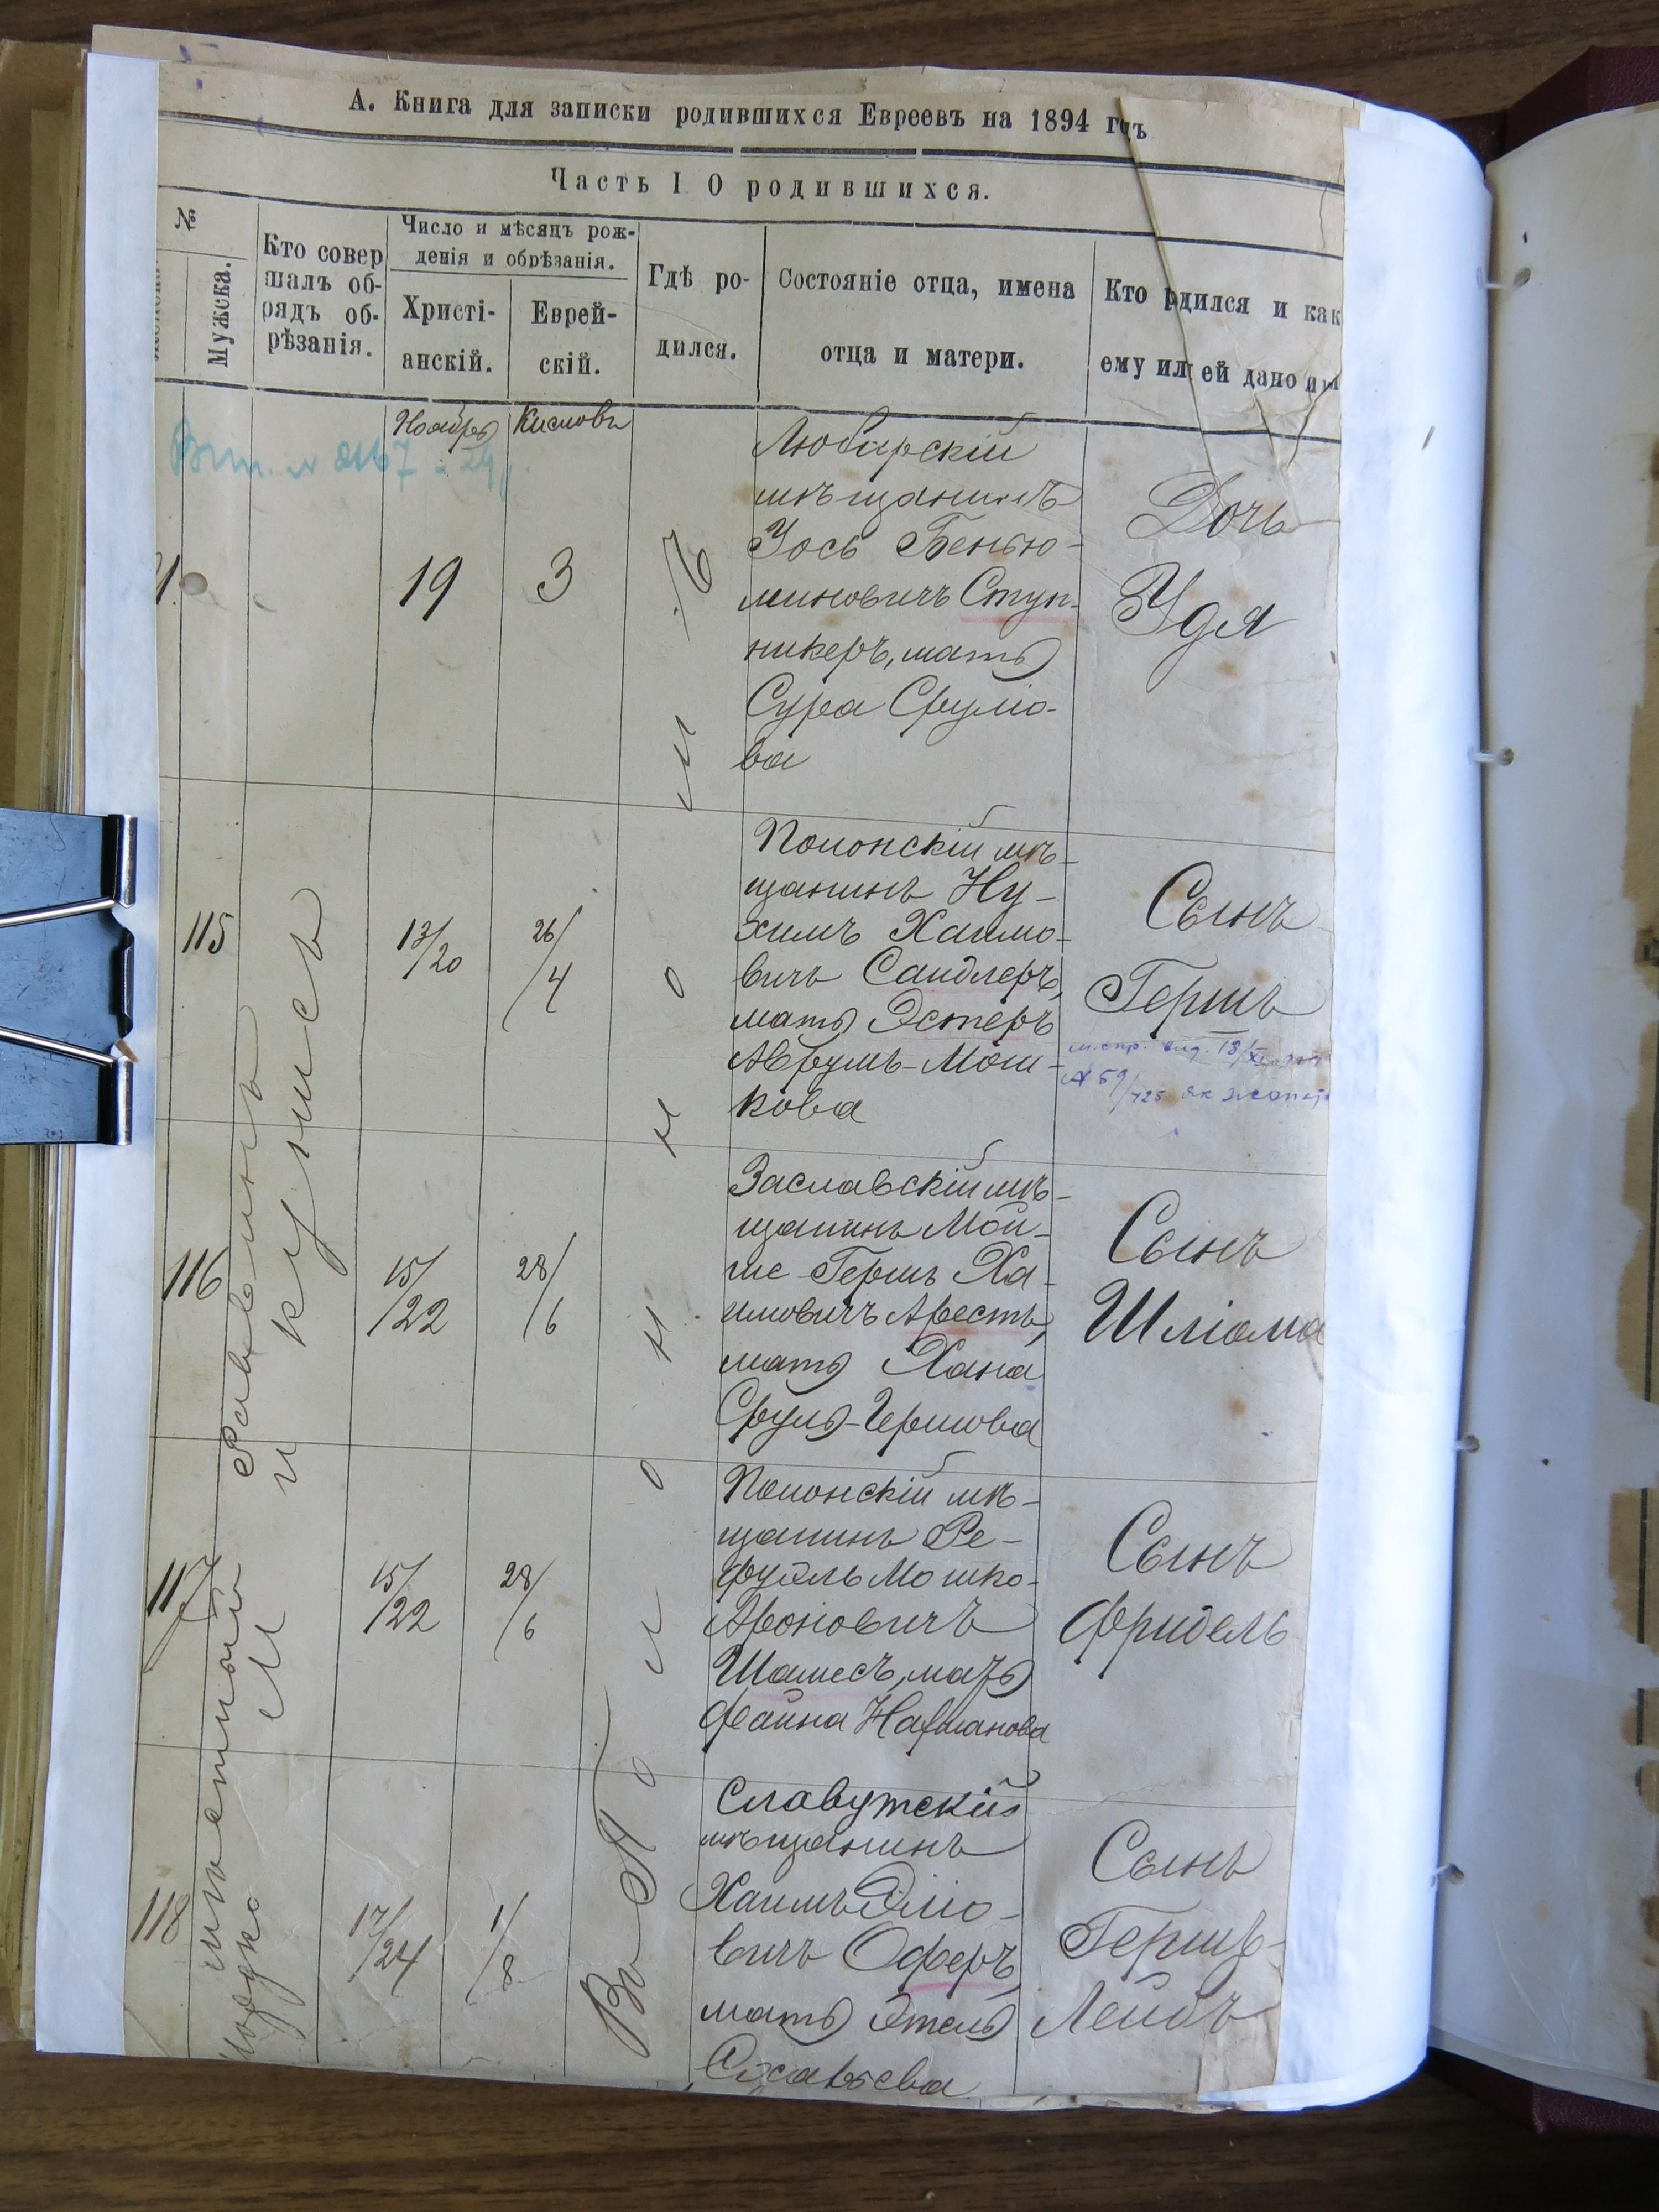 А. Книга для записки родившихся Евреевъ на 1894 годъ
Часть I О родившихся.
№
Мужска.
Кто совер
шалъ об-
рядъ об-
рѣзанія.
Число и мѣсяцъ рож-
денія и обрѣзанія.
Христі-
анскій.
Еврей-
скій.
Гдѣ ро-
дился.
Состояніе отца, имена
отца и матери.
Кто рдился и как
ему ил ей дано им
Ноября
Кислевъ
19
3
Любарскій
мѣщанинъ
Іось Бенью-
миновичъ Ступ-
никеръ, мать
Сура Срулю-
ва
Дочь
Удя
115
13/20
26/4
Полонскій мѣ-
щанинъ Ну-
химъ Хаимо-
вичъ Сандлеръ,
мать Эстеръ
Аврумъ-Мош-
кова
Сынъ
Гершъ
116
15/22
28/6
Заславскій мѣ-
щанинъ Мой-
ше-Гершъ Ха-
имовичъ Арестъ,
мать Хана
Сруль-Гершова
Сынъ
Шліома
117
15/22
28/6
Полонскій мѣ-
щанинъ Ре-
фуэль Мошко-
Ароновичъ
Шамесъ, мать
Файна Нахманова
Сынъ
Фридель
118
17/24
1/8
Славутскій
мѣщанинъ
Хаимъ Эліо-
вичъ Оферъ,
мать Этель
Сынъ
Гершъ-
Лейбъ
Раввинъ
и
Въ Полонномъ